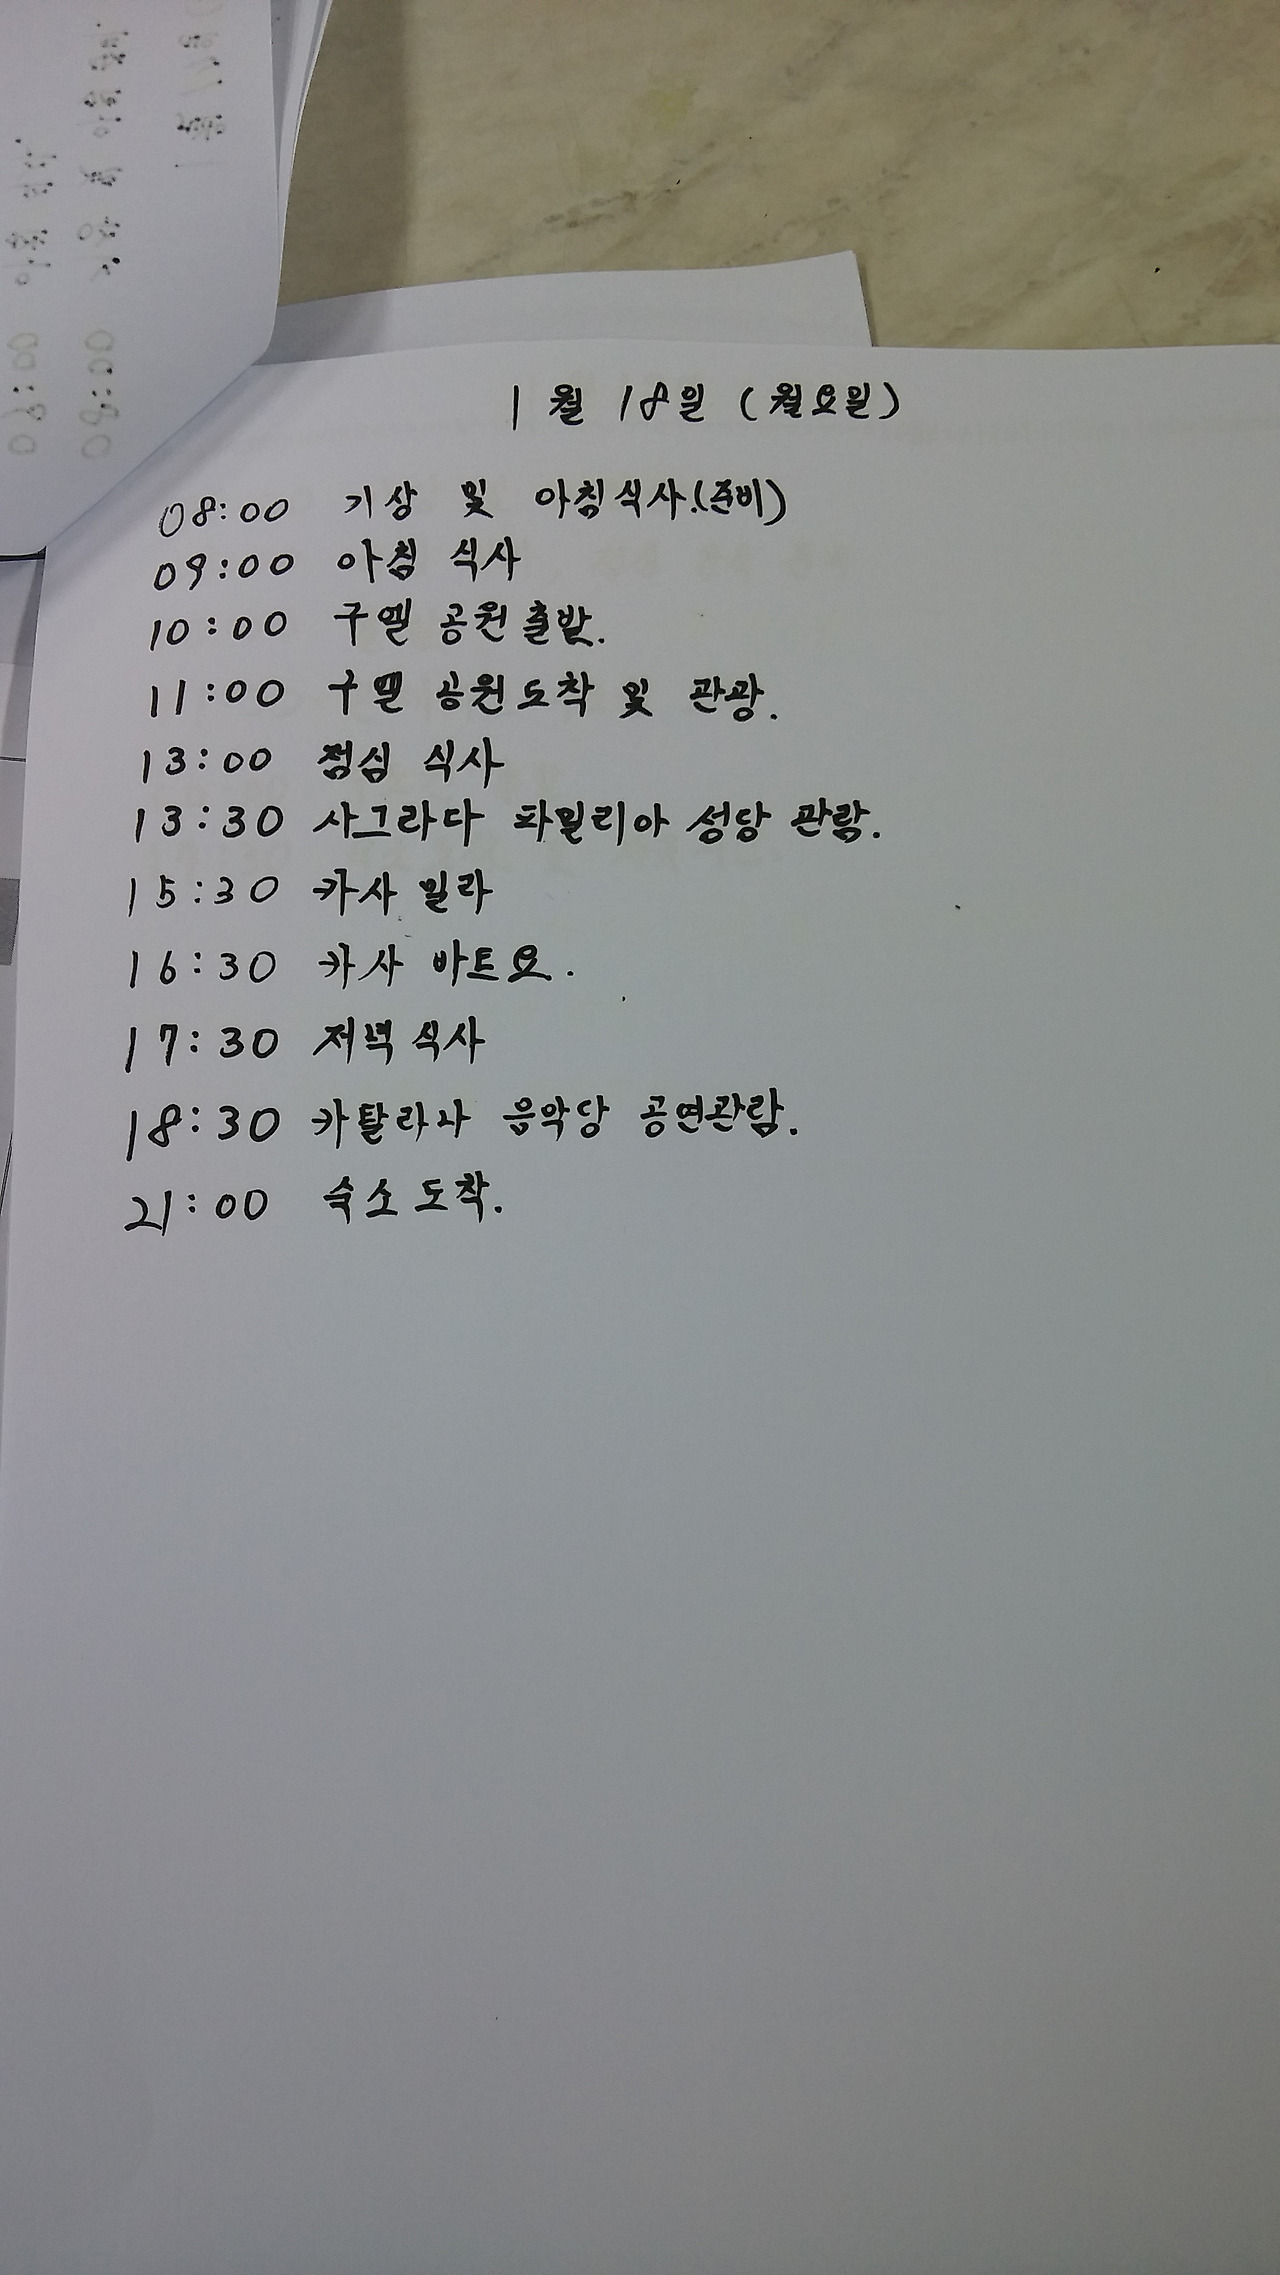 1월 18일 (월요일)
08:00 기상 및 아침식사.(준비)
09:00 아침 식사
10:00 구엘 공원출발.
11:00 구엘 공원도착 및 관광.
13:00 점심 식사
13:30 사그라다 파밀리아 성당 관람.
15:30 카사 밀라
16:30 카사 바트요.
17:30 저녁식사
18:30 카탈라나 음악당 공연관람.
21:00 숙소도착.